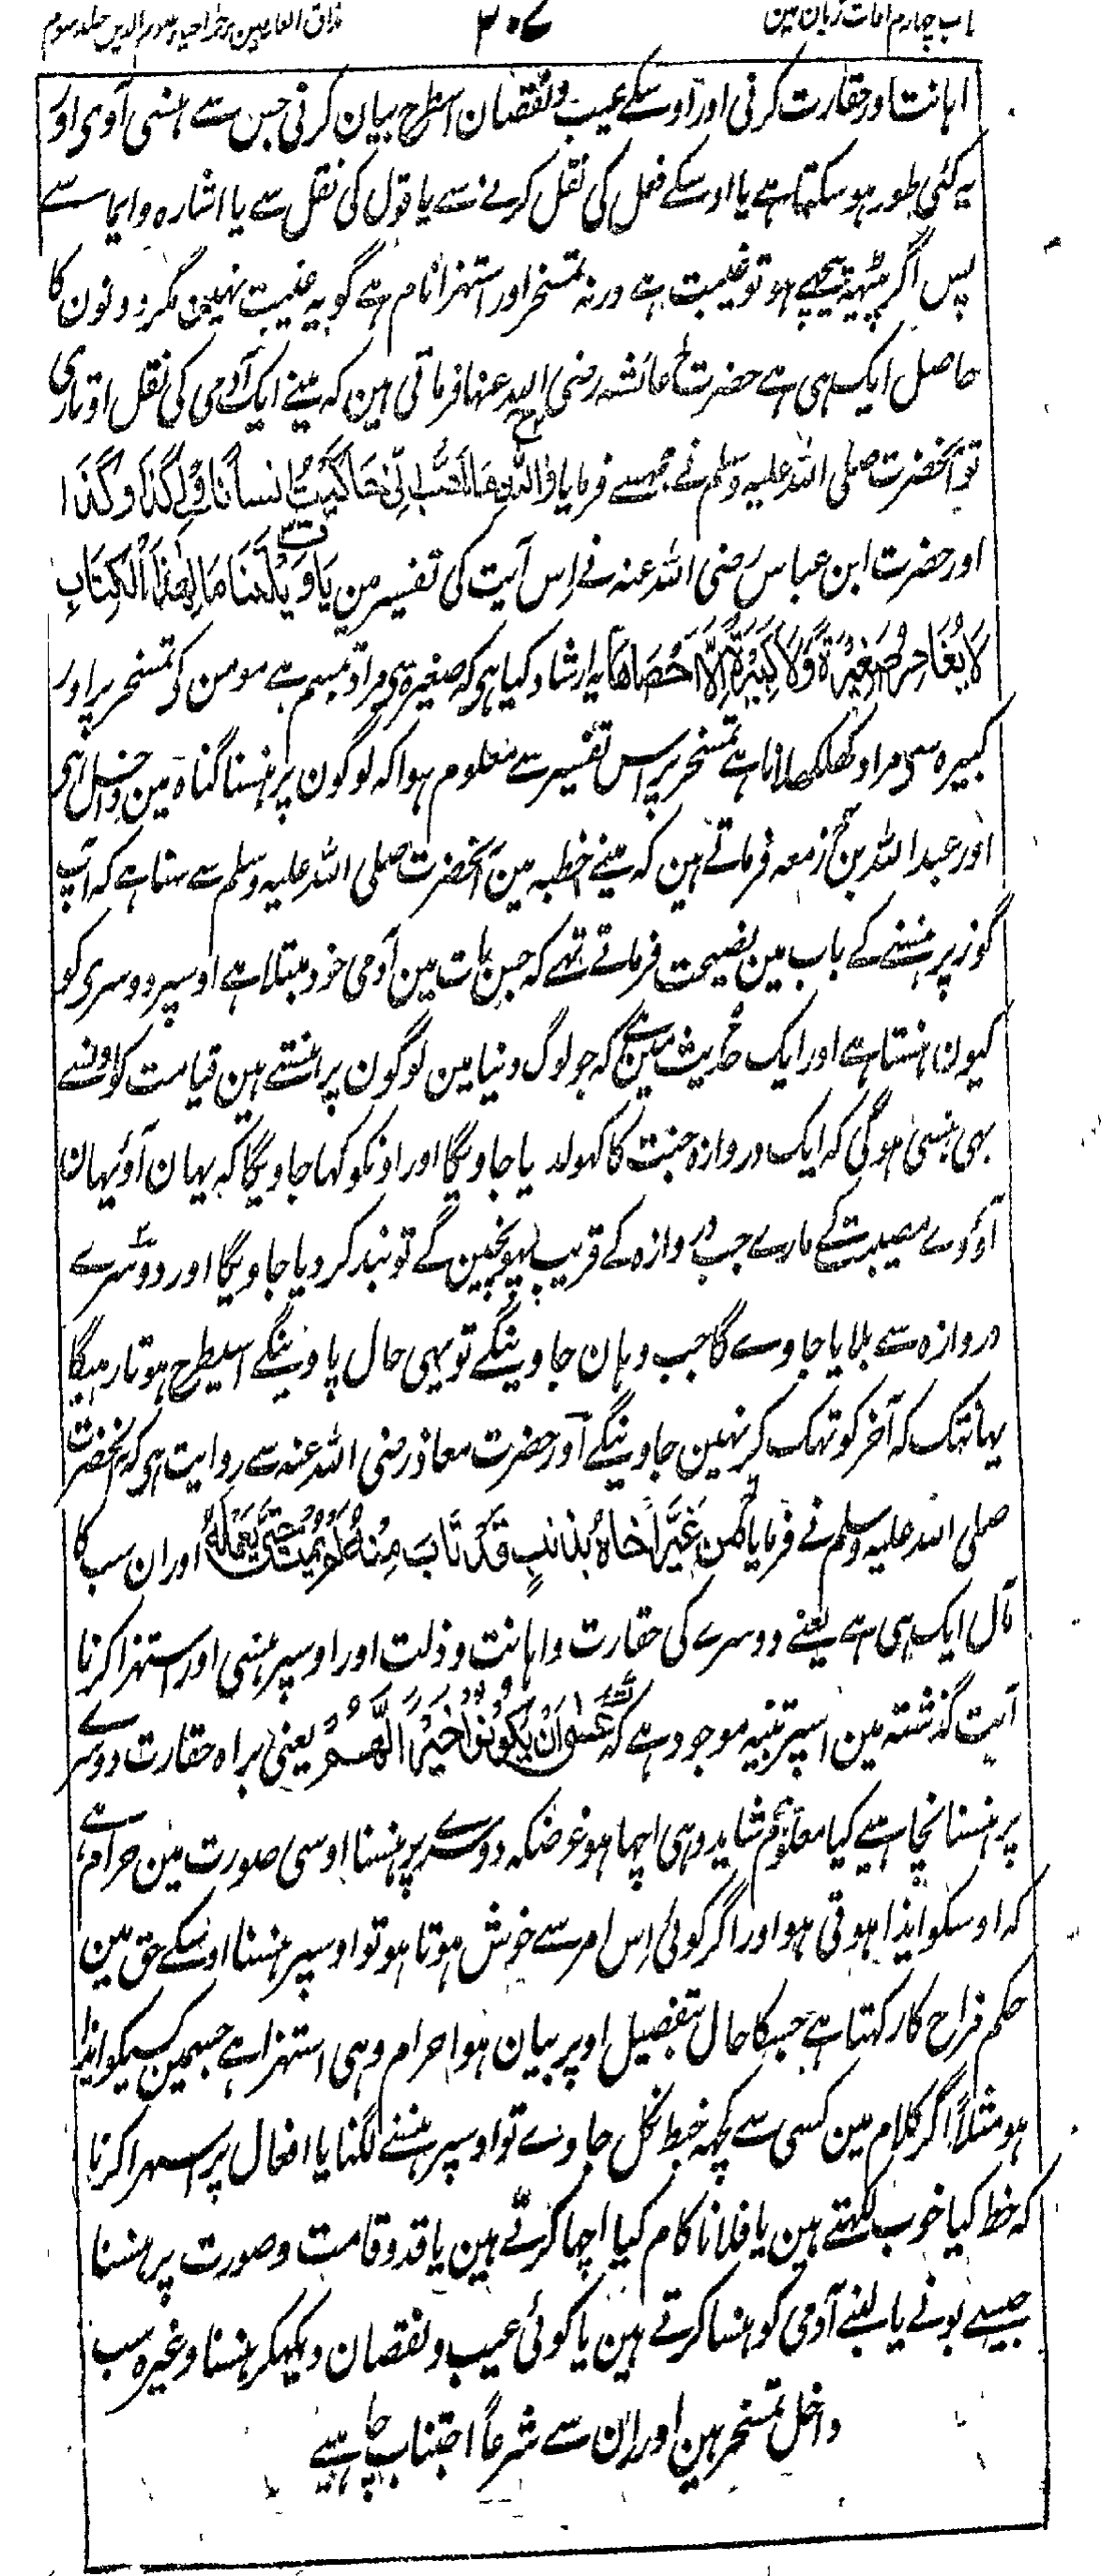 باب چہارم آفات زبان مین ۲۰۷ مذاق العارفین ترجمہ احیاء علوم الدین جلد سوم
اہانت اور حقارت کرنی اور اوسکے عیب و نقصان اسطرح بیان کرنی جس سے ہنسی آوی اور
یہ کئی طور ہو سکتا ہے یا اوسکے فعل کی نقل کرنے سے یا قول کی نقل سے یا اشارہ و ایما سے
پس اگر پیٹھہ پیچھے ہو تو غیبت ہے ورنہ تمسخر اور استہزا نام ہے گو یہ غیبت نہین مگر دونون کا
حاصل ایک ہی ہے حضرت عائشہ رضی اللہ عنہا فرماتی ہین کہ مینے ایک آدمی کی نقل اوتاری
تو آنحضرت صلی اللہ علیہ وسلم نے مجھسے فرمایا وَاللّٰہِ مَا اُحِبُّ اَنِّی حَاکَیْتُ اِنسَانًا وَّلِیْ کَذَا وَکَذَا
اور حضرت ابن عباس رضی اللہ عنہ نے اِس آیت کی تفسیر مین یَا وَیْلَتَنَا مَا لِھٰذَا الْکِتَابِ
لَا یُغَادِرُ صَغِیْرَۃً وَّلَا کَبِیْرَۃً اِلَّا اَحْصَاھَا یہ ارشاد کیا ہی کہ صغیرہ سی مراد تبسم ہے مومن کی تمسخر پر اور
کبیرہ سی مراد کھلکھلانا ہے تمسخر پر اس تفسیر سے معلوم ہوا کہ لوگون پر ہنسنا گناہ مین داخل ہی
اور عبداللہ بن زمعہ فرماتے ہین کہ مینے خطبہ مین آنحضرت صلی اللہ علیہ وسلم سے سنا ہے کہ آپ
گوز پر ہنسنے کے باب مین نصیحت فرماتے تھے کہ جس بات مین آدمی خود مبتلا ہے اوسپر دوسری کو
کیون ہنستا ہے اور ایک حدیث مین ہے کہ جو لوگ دنیا مین لوگون پر ہنستے ہین قیامت کو اونسے
بھی ہنسی ہوگی کہ ایک دروازہ جنت کا کھولدیا جاویگا اور اونکو کہا جاویگا کہ یہان آؤ یہان
آؤ وے مصیبت کے مارے جب دروازہ کے قریب پہونچین گے تو بند کر دیا جاویگا اور دوسرے
دروازہ سے بلایا جاوے گا جب وہان جاوینگے تو یہی حال پاوینگے اسیطرح ہوتا رہیگا
یہانتک کہ آخر کو تھک کر نہین جاوینگے اور حضرت معاذ رضی اللہ عنہ سے روایت ہی کہ آنحضرت
صلی اللہ علیہ وسلم نے فرمایا مَنْ عَیَّرَ اَخَاہُ بِذَنْبٍ قَدْ تَابَ مِنْہُ لَمْ یَمُتْ حَتّٰی یَعْمَلَہٗ اور ان سب کا
مآل ایک ہی ہے یعنے دوسرے کی حقارت و اہانت و ذلت اور اوسپر ہنسی اور استہزا کرنا
آیت گذشتہ مین اسپر تنبیہ موجود ہے کہ عَسٰی اَنْ یَّکُوْنُوْا خَیْرًا مِّنْھُمْ یعنی براہ حقارت دوسرے
پر ہنسنا نچاہیے کیا معلوم شاید وہی اچھا ہو غرضکہ دوسرے پر ہنسنا اوسی صورت مین حرام ہے
کہ اوسکو ایذا ہوتی ہو اور اگر کوئی اِس امر سے خوش ہوتا ہو تو اوسپر ہنسنا اوسکے حق مین
حکم مزاح کا رکھتا ہے جسکا حال بتفصیل اوپر بیان ہوا حرام وہی استہزا ہے جسمین کسیکو ایذا
ہو مثلاً اگر کلام مین کسی سے کچھ خبط نکل جاوے تو اوسپر ہنسنے لگنا یا افعال پر استہزا کرنا
کہ خط کیا خوب لکھتے ہین یا فلانا کام کیا اچھا کرتے ہین یا قد و قامت و صورت پر ہنسنا
جیسے بونے یا لنبے آدمی کو ہنسا کرتے ہین یا کوئی عیب و نقصان دیکھکر ہنسنا وغیرہ سب
داخل تمسخر ہین اور ان سے شرعاً اجتناب چاہیے